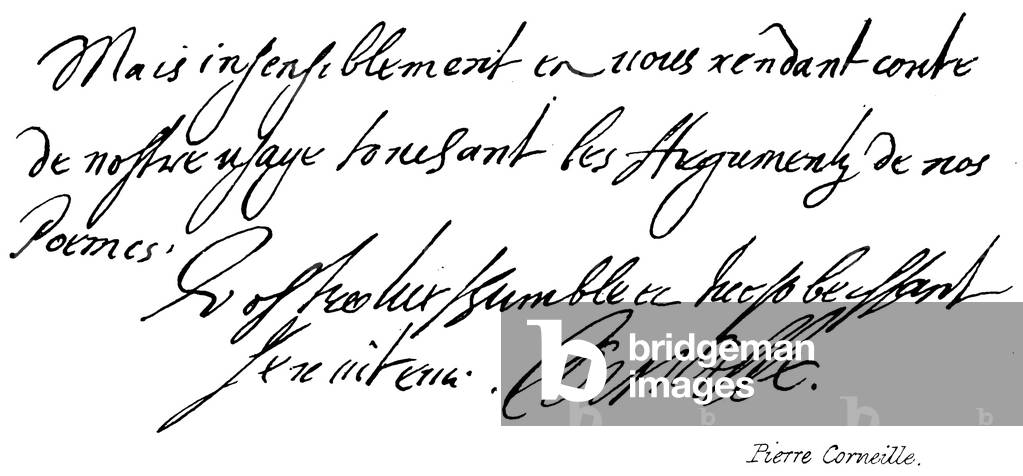 Mais insensiblement en vous rendant conte
de nostre usage touchant les Arguments de nos
Poemes.
Vostre tres humble et tres obeissant
serviteur. Corneille.
bridgeman
images
Pierre Corneille.